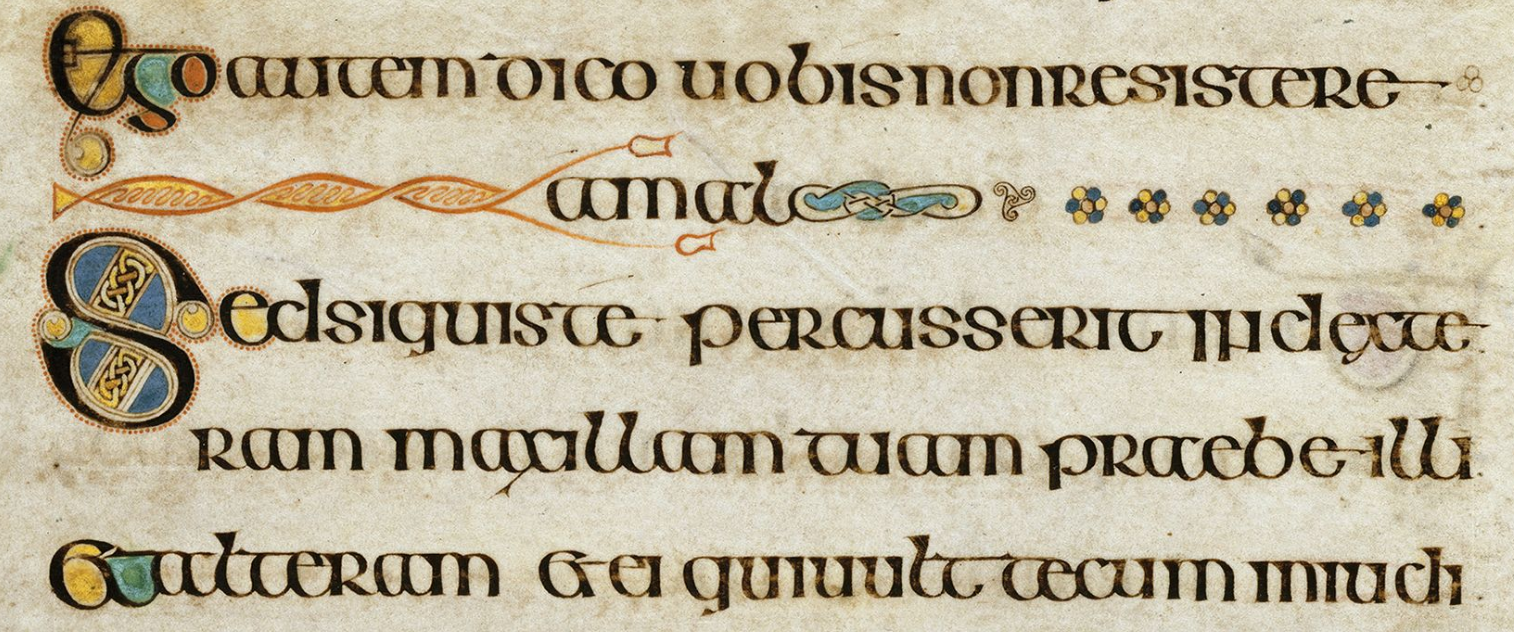 Ego autem dico uobis non resistere
a malo
Sed si quis te percusserit in dexte
ram maxillam tuam praebe illi
Et alteram et ei qui uult tecum in iudi